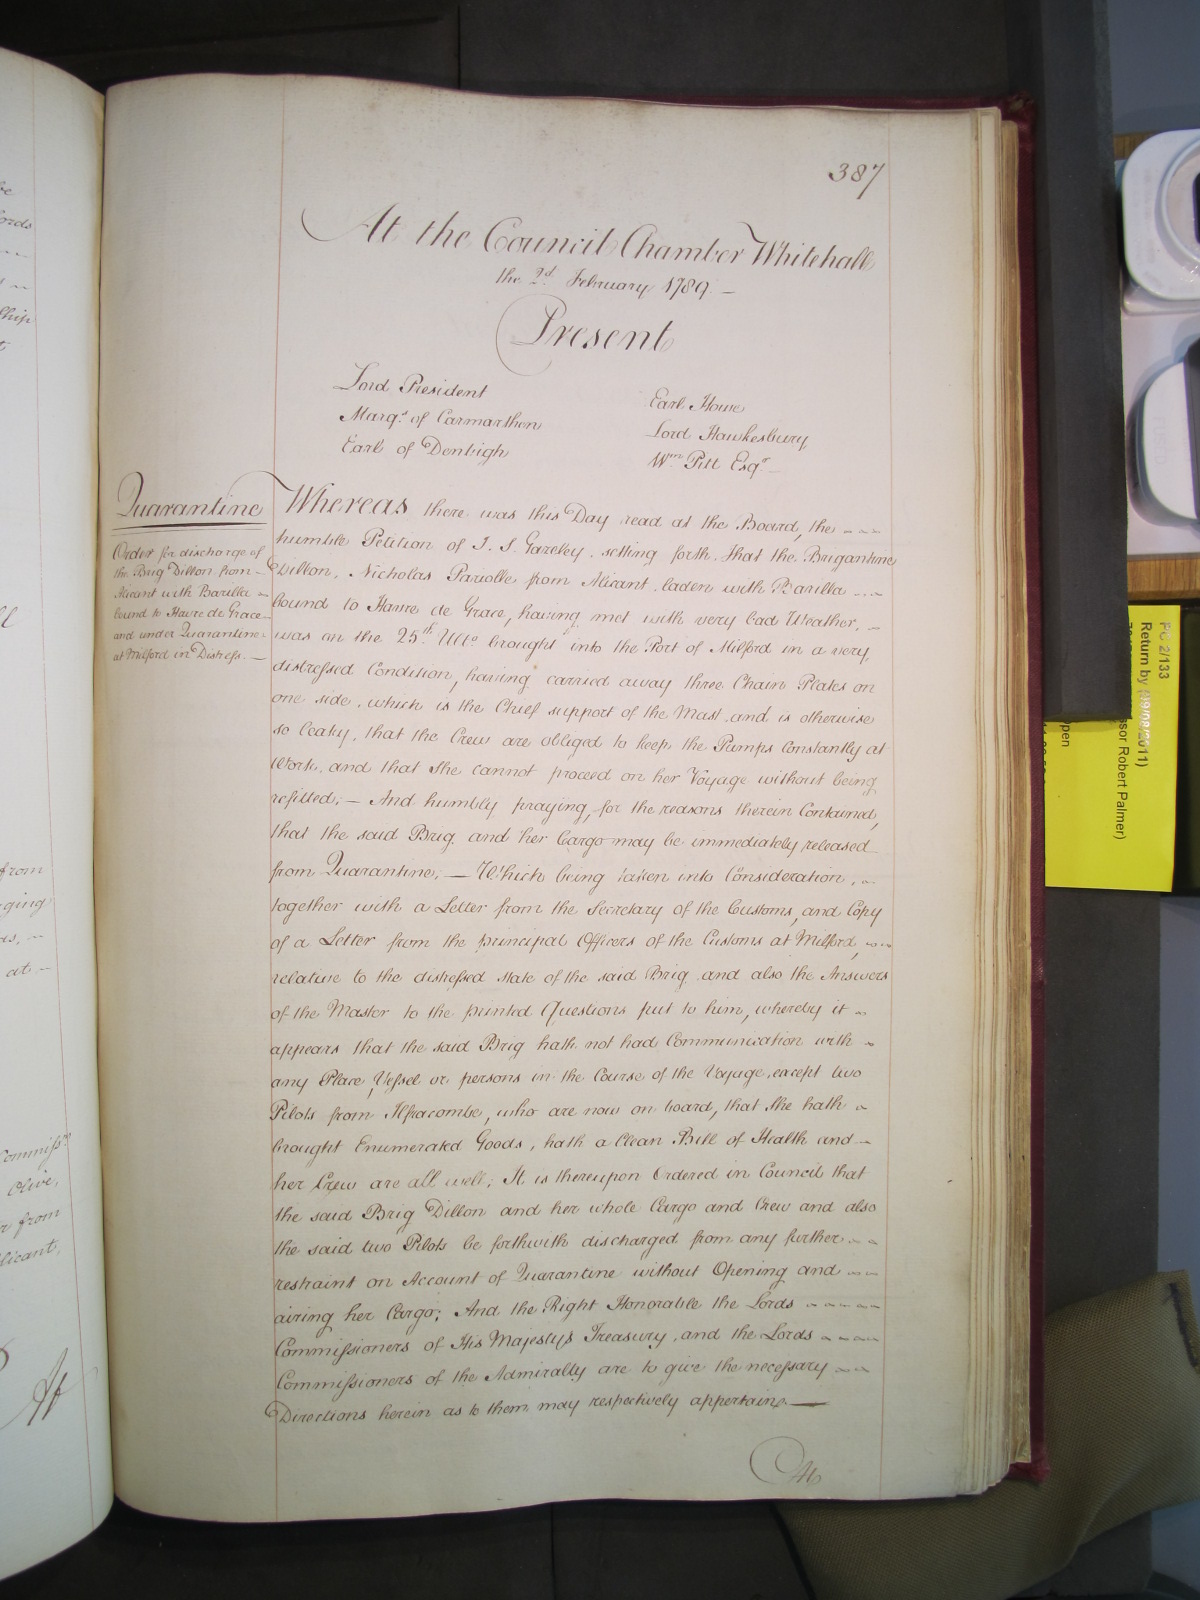 387
At the Council Chamber Whitehall
the 2d. February 1789. —
Present
Lord President
Marqs. of Carmarthen
Earl of Denbigh
Earl Howe
Lord Hawkesbury
Wm Pitt Esqr
Quarantine
Order for discharge of
the Brig Dillon from
Alicant with Barilla
bound to Havre de Grace
and under Quarantine
at Milford in Distress. —
Whereas there was this Day read at the Board, the
humble Petition of I. S. setting forth, that the Brigantine
Dillon, Nicholas from Alicant laden with Barilla
bound to Havre de Grace, having met with very bad Weather, —
was on the 25th. Ulto brought into the Port of Milford in a very
distressed Condition, having carried away three Chain Plates on
one side, which is the Chief support of the Mast and is otherwise
so leaky, that the Crew are obliged to keep the Pumps constantly at
Work, and that She cannot proceed on her Voyage without being
refitted; — And humbly praying, for the reasons therein Contained,
that the said Brig and her Cargo may be immediately released
from Quarantine; — Which being taken into Consideration,
together with a Letter from the Secretary of the Customs, and Copy
of a Letter from the principal Officers of the Customs at Milford,
relative to the distressed state of the said Brig and also the Answers
of the Master to the printed Questions put to him, whereby it
appears that the said Brig hath not had Communication with
any Place, Vessel or persons in the Course of the Voyage, except two
Pilots from Ilfracombe, who are now on board, that She hath
brought Enumerated Goods, hath a Clean Bill of Health and
her Crew are all well; It is thereupon Ordered in Council that
the said Brig Dillon and her whole Cargo and Crew and also
the said two Pilots be forthwith discharged from any further
restraint on Account of Quarantine without Opening and
airing her Cargo; And the Right Honorable the Lords
Commissioners of His Majestys Treasury, and the Lords
Commissioners of the Admiralty are to give the necessary
Directions herein as to them may respectively appertain. —
At
from
ging
at
Commissrs
Olive,
r from
licant,
At
PC 2/133
Return by (09/08/2011)
ssor Robert Palmer)